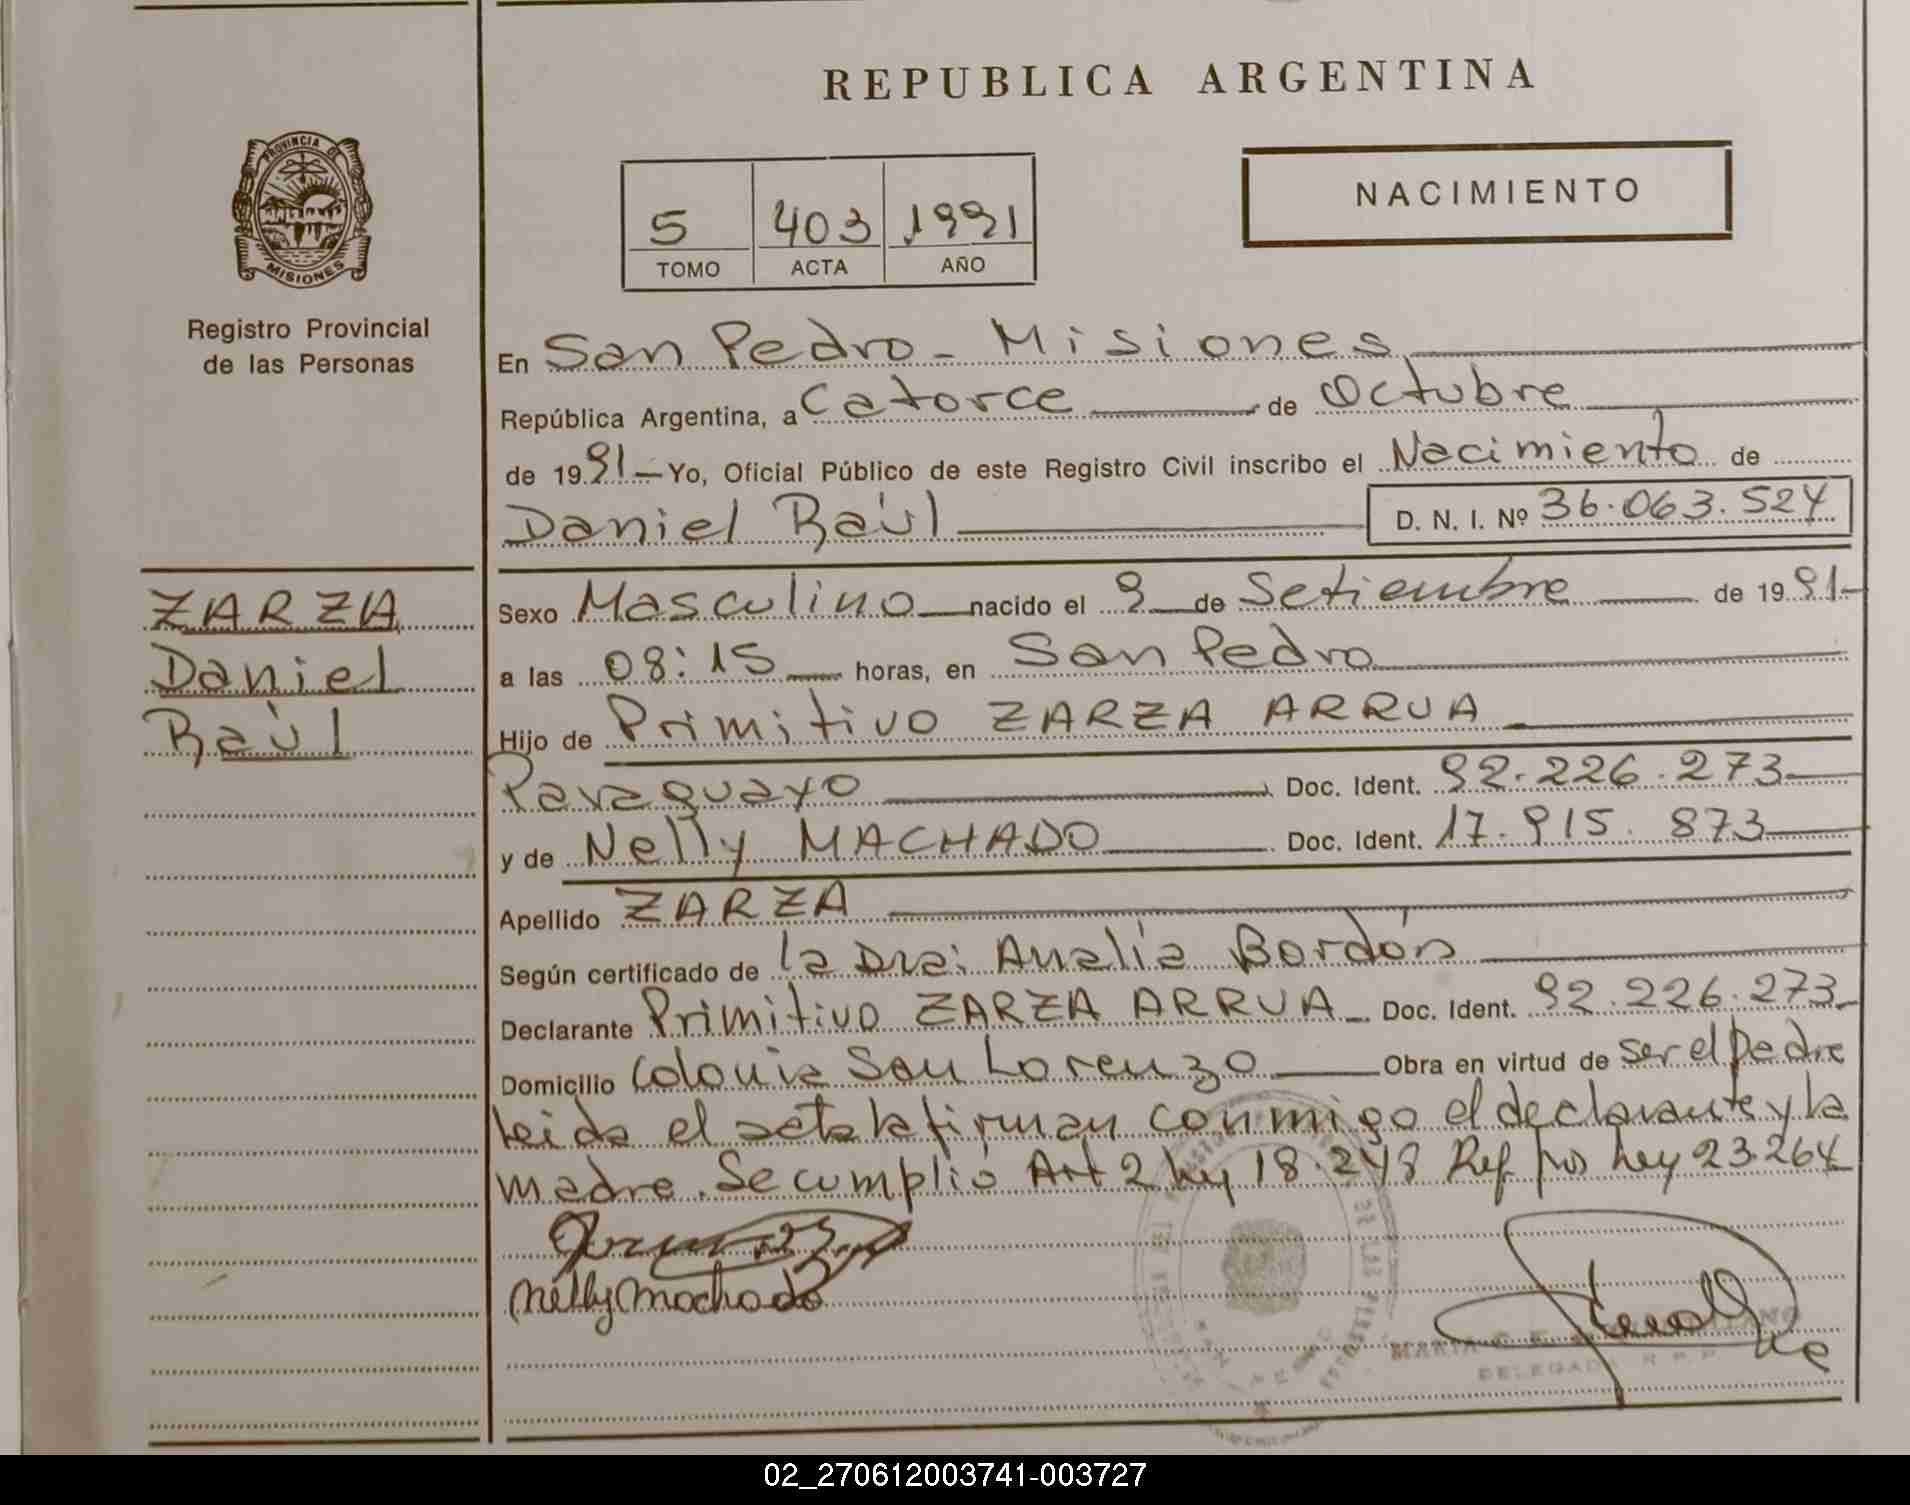 REPUBLICA ARGENTINA
PROVINCIA DE
MISIONES
Registro Provincial
de las Personas
NACIMIENTO
5 403 1991
TOMO ACTA AÑO
En San Pedro - Misiones
República Argentina, a Catorce de Octubre
de 1991 — Yo, Oficial Público de este Registro Civil inscribo el Nacimiento de
Daniel Raúl D. N. I. Nº 36.063.524
ZARZA
Daniel
Raúl
Sexo Masculino nacido el 9 de Setiembre de 1991-
a las 08:15 horas, en San Pedro
Hijo de Primitivo ZARZA ARRUA
Paraguayo Doc. Ident. 92.226.273
y de Nelly MACHADO Doc. Ident. 17.915.873
Apellido ZARZA
Según certificado de la Dra: Analía Bordón
Declarante Primitivo ZARZA ARRUA Doc. Ident. 92.226.273
Domicilio Colonia San Lorenzo Obra en virtud de ser el padre
leida el acta la firman conmigo el declarante y la
madre. Se cumplió Art 2 ley 18.248 Ref por ley 23.264
Nelly Machado
MARTA
DELEGADA R.P.P.
02_270612003741-003727